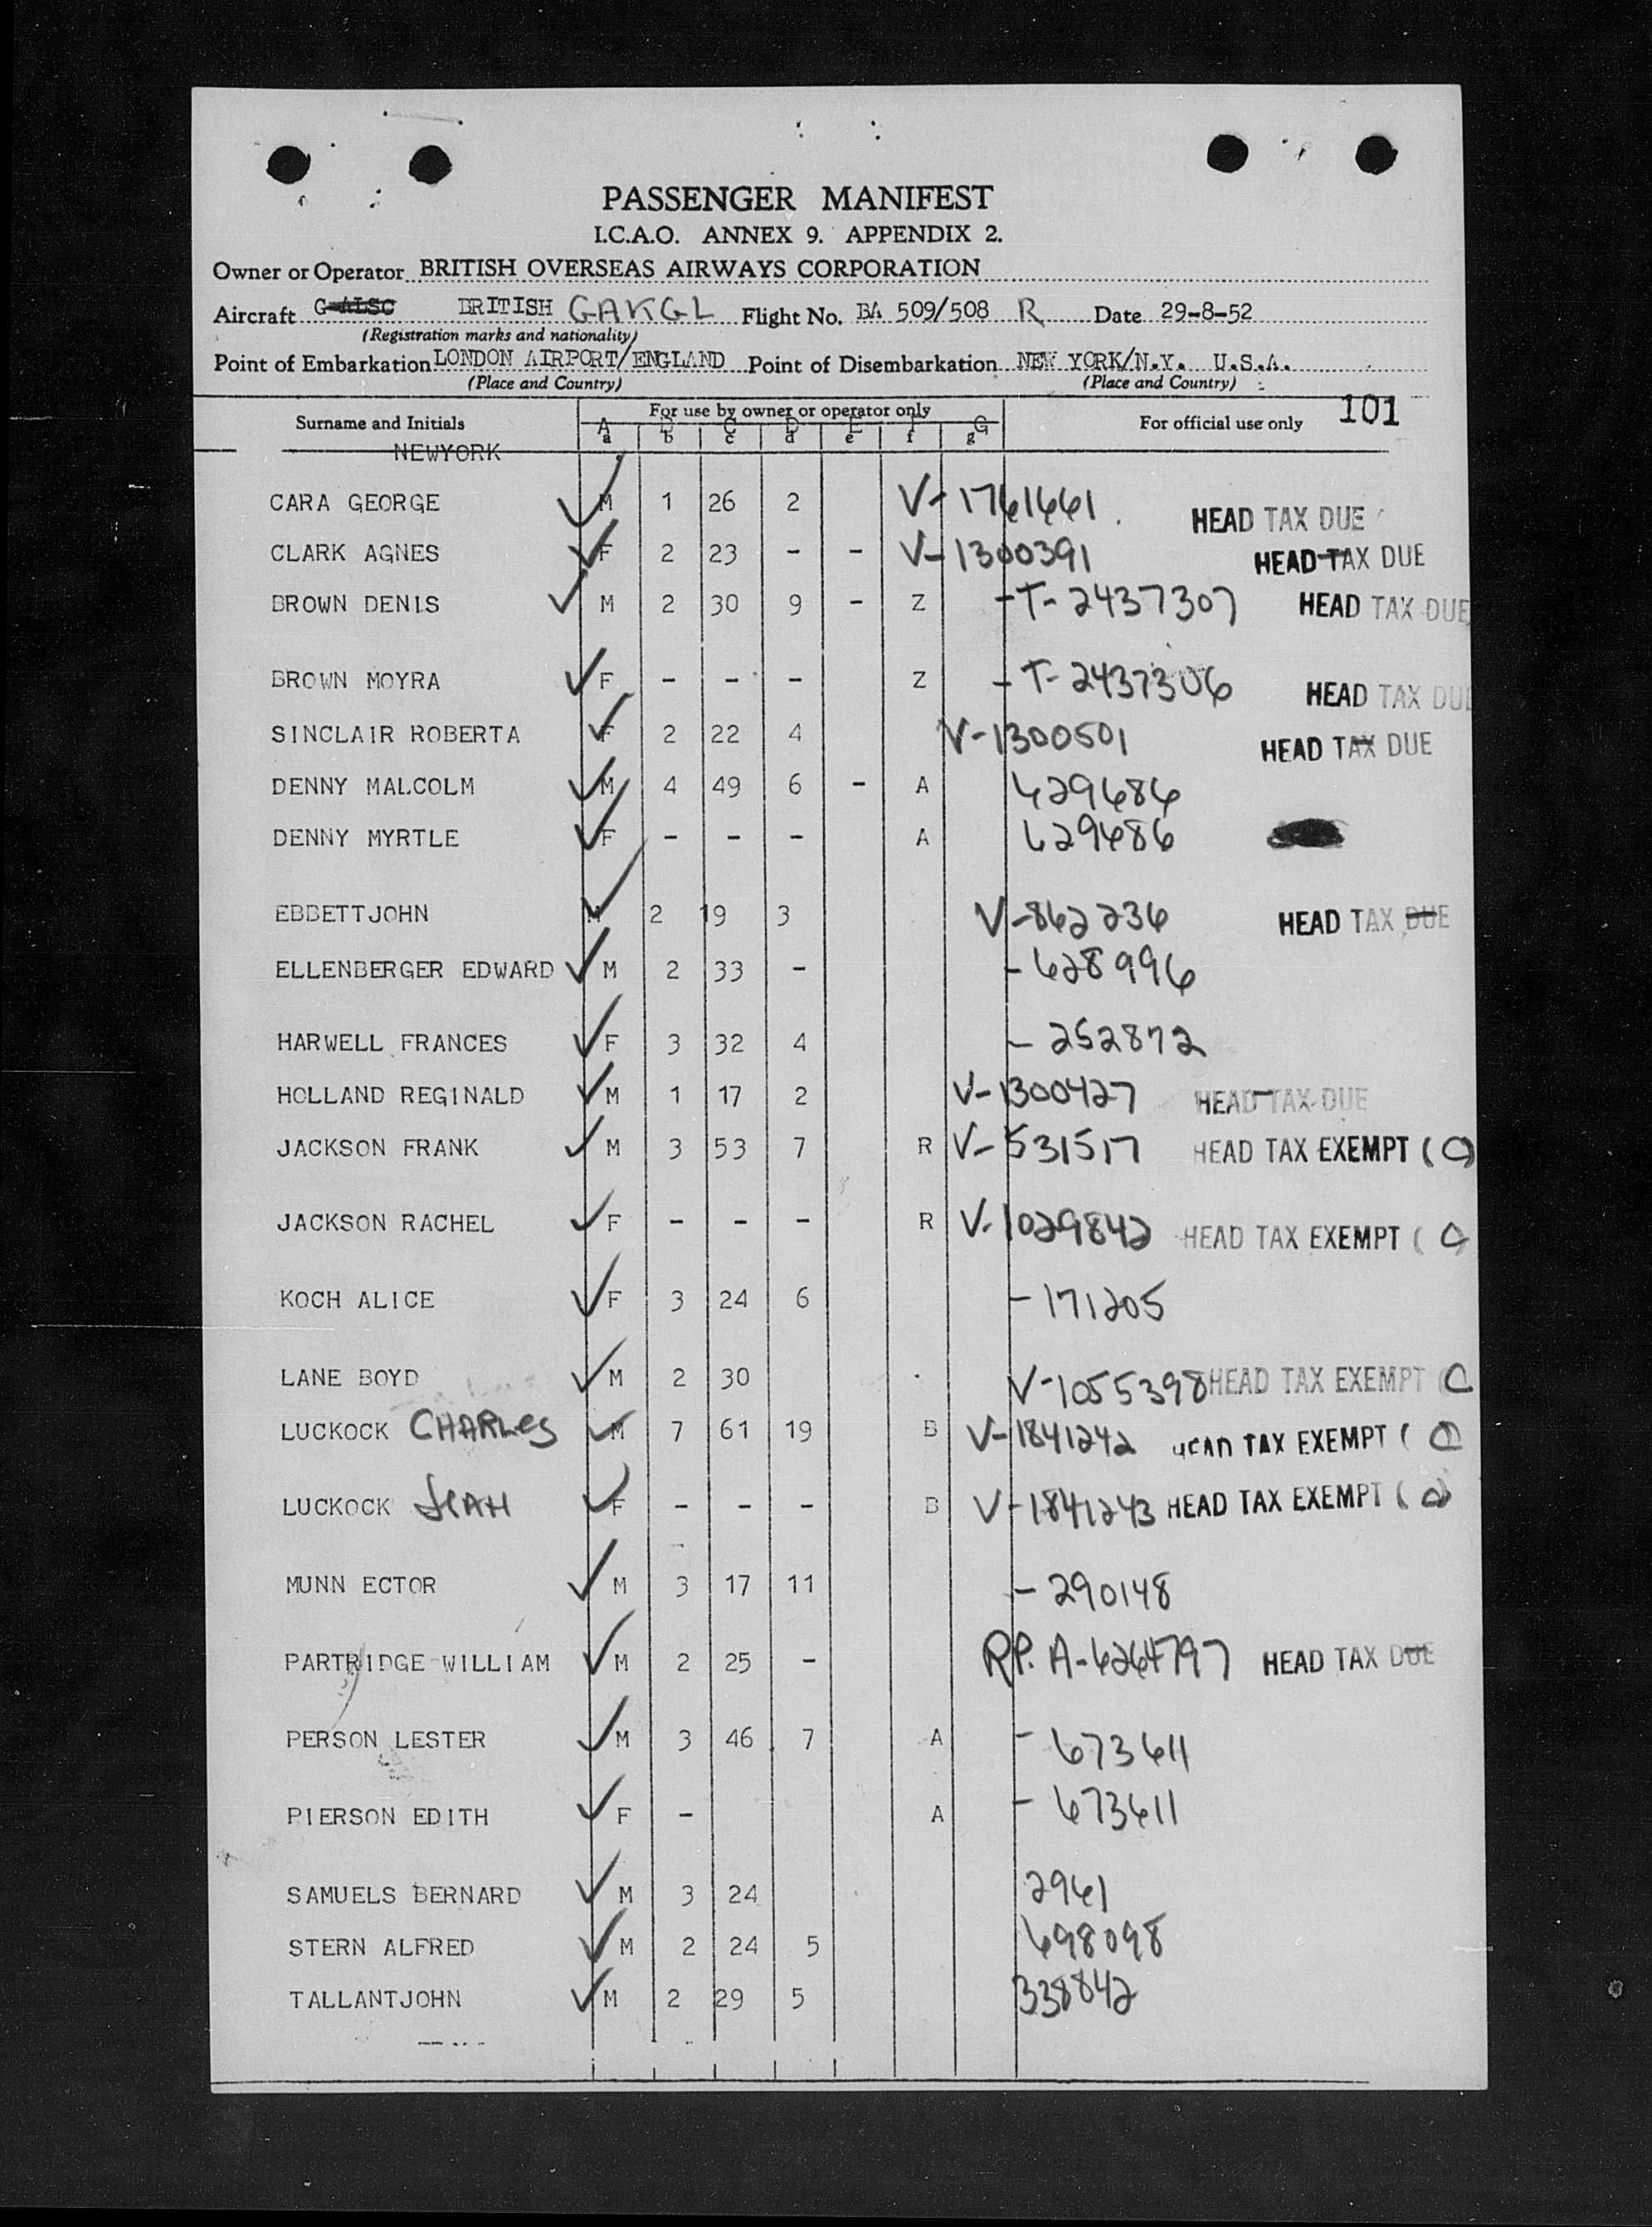 PASSENGER MANIFEST
I.C.A.O. ANNEX 9. APPENDIX 2.
Owner or Operator BRITISH OVERSEAS AIRWAYS CORPORATION
Aircraft G-ALSC BRITISH GAKGL Flight No. BA 509/508 R Date 29-8-52
(Registration marks and nationality)
Point of Embarkation LONDON AIRPORT/ENGLAND Point of Disembarkation NEW YORK/N.Y. U.S.A.
(Place and Country) (Place and Country)
Surname and Initials For use by owner or operator only For official use only 101
A B C D E F G
a b c d e f g
NEWYORK
CARA GEORGE M 1 26 2 V-1761661 HEAD TAX DUE
CLARK AGNES F 2 23 - - V-1300391 HEAD TAX DUE
BROWN DENIS M 2 30 9 - Z -T-2437307 HEAD TAX DUE
BROWN MOYRA F - - - Z -T-2437306 HEAD TAX DUE
SINCLAIR ROBERTA F 2 22 4 V-1300501 HEAD TAX DUE
DENNY MALCOLM M 4 49 6 - A 629686
DENNY MYRTLE F - - - A 629686
EBBETTJOHN M 2 19 3 V-862236 HEAD TAX DUE
ELLENBERGER EDWARD M 2 33 - -628996
HARWELL FRANCES F 3 32 4 - 252872
HOLLAND REGINALD M 1 17 2 V-1300427 HEAD TAX DUE
JACKSON FRANK M 3 53 7 R V-531517 HEAD TAX EXEMPT (C)
JACKSON RACHEL F - - - R V-1029842 HEAD TAX EXEMPT (C)
KOCH ALICE F 3 24 6 - 171205
LANE BOYD M 2 30 V-1055398 HEAD TAX EXEMPT (C
LUCKOCK CHARLES M 7 61 19 B V-1841242 HEAD TAX EXEMPT (C)
LUCKOCK F - - - B V-1841243 HEAD TAX EXEMPT (C)
MUNN ECTOR M 3 17 11 - 290148
PARTRIDGE WILLIAM M 2 25 - RP. A-6264797 HEAD TAX DUE
PERSON LESTER M 3 46 7 A - 673611
PIERSON EDITH F - A - 673611
SAMUELS BERNARD M 3 24 2961
STERN ALFRED M 2 24 5 698098
TALLANTJOHN M 2 29 5 338842